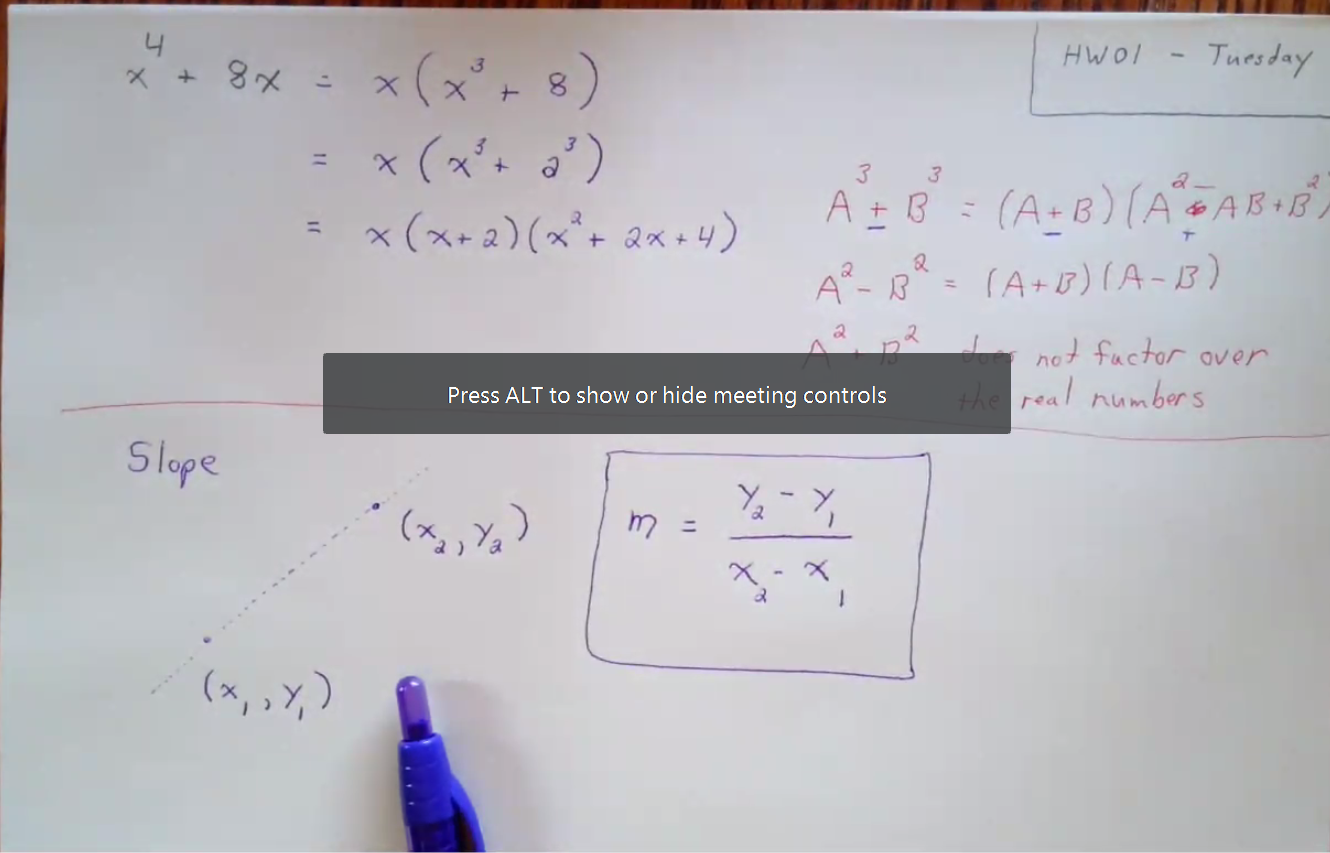 x⁴ + 8x = x(x³ + 8)
= x(x³ + 2³)
= x(x+2)(x² + 2x + 4)
HW01 - Tuesday
A³ ± B³ = (A ± B)(A² ∓ AB + B²)
A² - B² = (A+B)(A-B)
A² + B² does not factor over
the real numbers
Press ALT to show or hide meeting controls
Slope
(x₂, y₂)
(x₁, y₁)
m = (y₂ - y₁) / (x₂ - x₁)